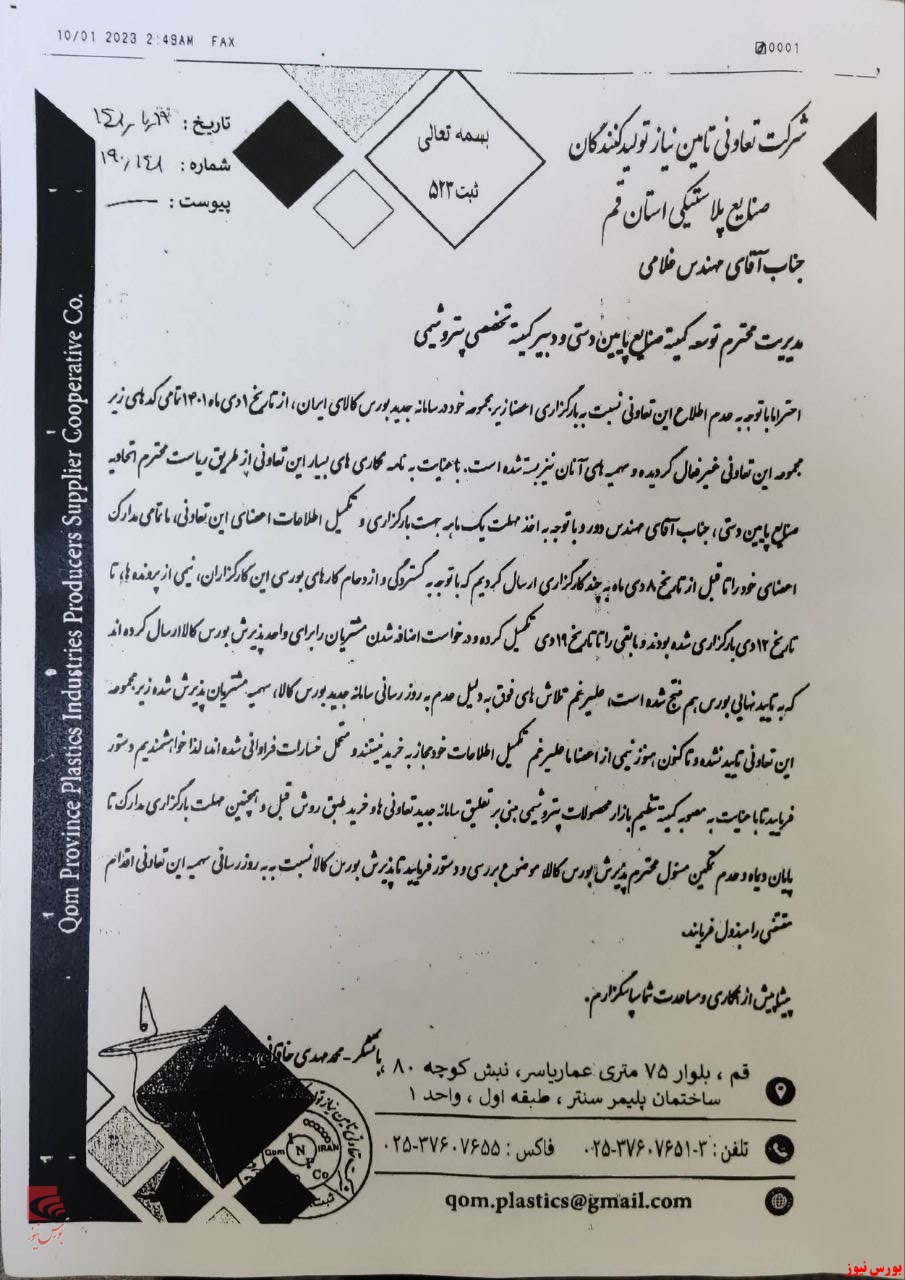 10/01 2023 2:49AM FAX
0001
شرکت تعاونی تامین نیاز تولیدکنندگان
صنایع پلاستیکی استان قم
بسمه تعالی
ثبت ۵۲۳
تاریخ :
شماره :
پیوست :
جناب آقای مهندس غلامی
مدیریت محترم توسعه کمیته صنایع پایین دستی و دبیر کمیته تخصصی پتروشیمی
احتراما با توجه به عدم اطلاع این تعاونی نسبت به بارگزاری اعضا زیر مجموعه خود در سامانه جدید بورس کالای ایران، از تاریخ ۱ دی ماه ۱۴۰۱ تمامی کد های زیر
مجموعه این تعاونی غیر فعال گردیده و سهمیه های آنان نیز بسته شده است. با عنایت به نامه نگاری های بسیار این تعاونی از طریق ریاست محترم اتحادیه
صنایع پایین دستی، جناب آقای مهندس دورو با توجه به اخذ مهلت یک ماهه جهت بارگزاری و تکمیل اطلاعات اعضای این تعاونی، ما تمامی مدارک
اعضای خود را تا قبل از تاریخ ۸ دی ماه به چند کارگزاری ارسال کردیم که با توجه به گستردگی و ازدحام کارهای بورسی این کارگزاران، نیمی از پرونده ها، تا
تاریخ ۱۲ دی بارگزاری شده بودند و مابقی را تا تاریخ ۱۹ دی تکمیل کرده و درخواست اضافه شدن مشتریان را برای واحد پذیرش بورس کالا ارسال کرده اند
که به تایید نهایی بورس هم منتج شده است، علیرغم تلاش های فوق به دلیل عدم به روز رسانی سامانه جدید بورس کالا، سهمیه مشتریان پذیرش شده زیر مجموعه
این تعاونی تایید نشده و تاکنون هنوز نیمی از اعضا با علیرغم تکمیل اطلاعات خود مجاز به خرید نیستند و متحمل خسارات فراوانی شده اند، لذا خواهشمندیم دستور
فرمایید تا با عنایت به مصوبه کمیته تنظیم بازار محصولات پتروشیمی مبنی بر تعلیق سامانه جدید تعاونی ها و خرید طبق روش قبل و همچنین مهلت بارگزاری مدارک تا
پایان دیماه و عدم تمکین مسئول محترم پذیرش بورس کالا، موضوع بررسی و دستور فرمایید تا پذیرش بورس کالا نسبت به به روز رسانی سهمیه این تعاونی اقدام
مقتضی را مبذول فرمایند.
پیشاپیش از همکاری و مساعدت شما سپاسگزارم.
با تشکر - محمد مهدی خاقانی
قم ، بلوار ۷۵ متری عماریاسر، نبش کوچه ۸۰ ،
ساختمان پلیمر سنتر ، طبقه اول ، واحد ۱
تلفن : ۳-۰۲۵-۳۷۶۰۷۶۵۱ فاکس : ۰۲۵-۳۷۶۰۷۶۵۵
qom.plastics@gmail.com
Qom Province Plastics Industries Producers Supplier Cooperative Co.
Qom N IRAN Co
بورس نیوز
بورس نیوز